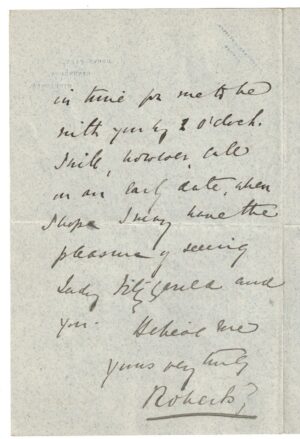 in time for me to be
with you by 2 o'clock.
I will, however, call
on an early date, when
I hope I may have the
pleasure of seeing
Lady Fitzgerald and
you. Believe me
yours very truly
Roberts